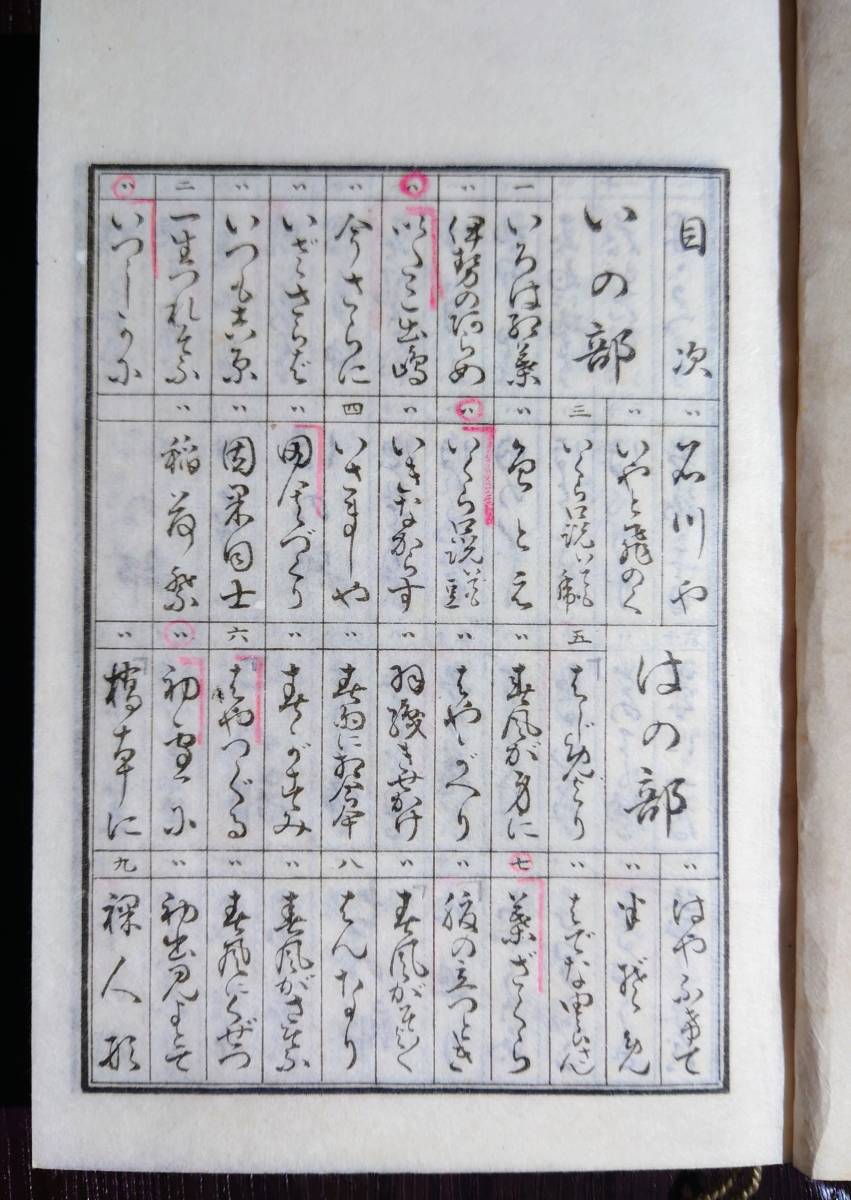 目次
いの部
一 いろは紅葉
〃 伊勢のあらめ
〃 いたこ出嶋
〃 今さらに
〃 いざさらば
〃 いつも吉原
二 一生つれそふ
〃 いつしかに
〃 石川や
〃 いやと飛のく
三 いくら口説いても
〃 色と
〃 いくら口説いても
〃 いきなからす
四 いさましや
〃 づくり
〃 因果同士
〃 稲荷祭
はの部
五 はじめ
〃 春風が身に
〃 はやがへり
〃 羽織きせかけ
〃 春雨に相合傘
〃 春がすみ
六 はやつぐる
〃 初雪に
〃 橋本に
〃 はやふきて
〃
〃 はでな
七 葉ざくら
〃 腹の立つとき
〃 春風が
八 はんなり
〃 春風がさそふ
〃 春風にくぜつ
〃 初出見よとて
九 裸人形